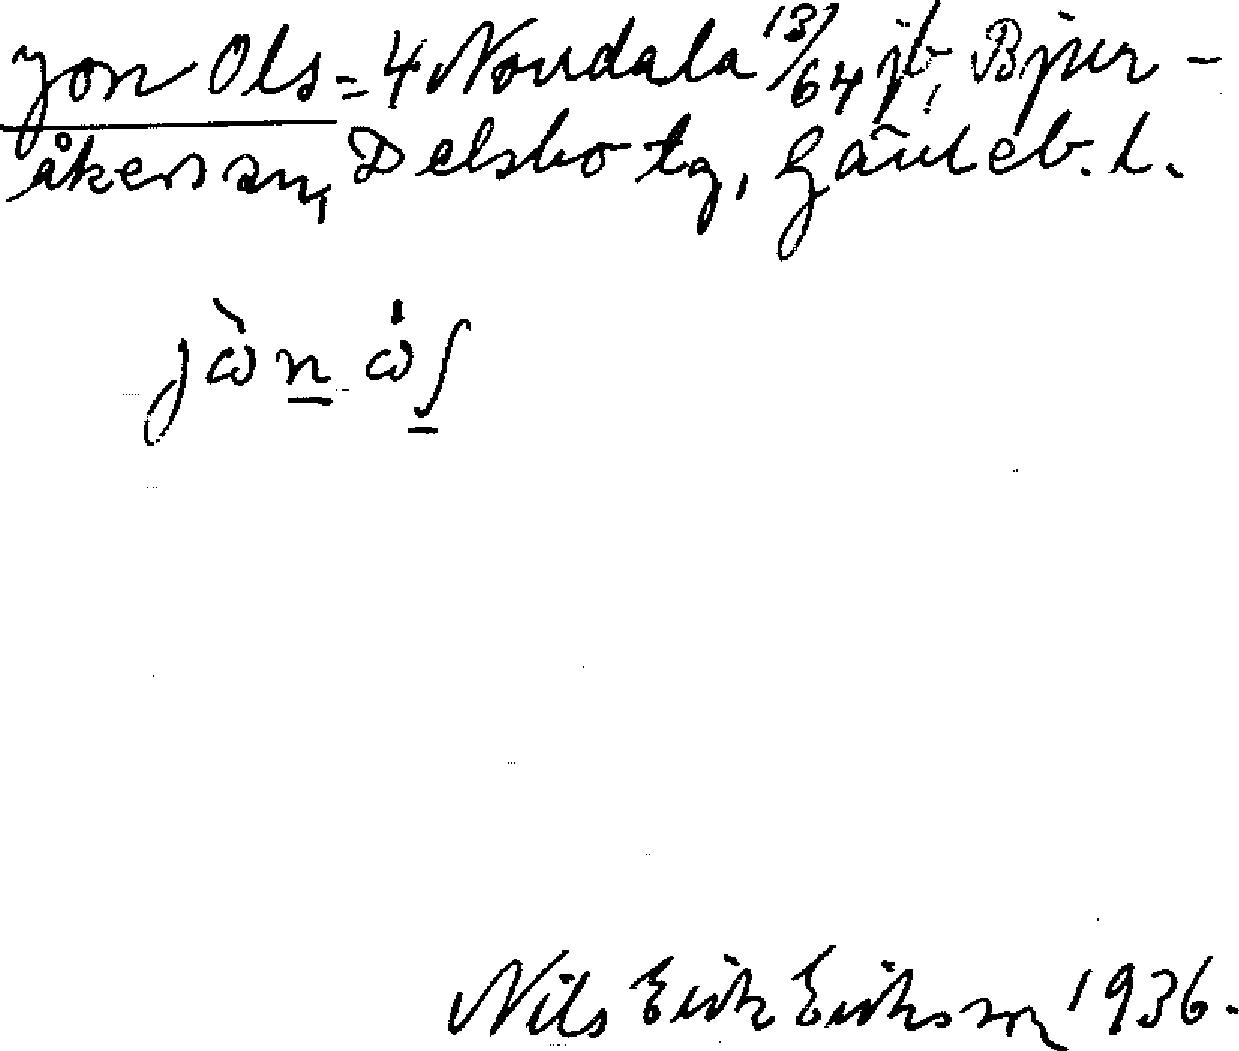 Jon Ols = 4 Norrdala 13/64 jb, Bjur-
åkers sn, Delsbo tg, Gävleb. l.
jòn ȯʃ
Nils Erik Eriksson 1936.